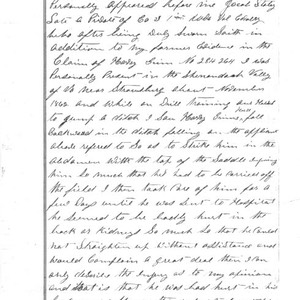 Personally Appeared before me Good Staley
Late a Private of Co I 1st
who after being Duly Sworn Saith in
Addition to my former Evidence in the
Claim of Harvy Guinn No 284264 I was
Personally Present in the Shenandoah Valley
of Va Near Strausburg about November
1862 and while on Drill Training our Horses
to Jump a ditch I Saw Harvy Guinn fall
Backward in the ditch falling on the afflicted
referred to So as to Strike him in the
Abdomen With the top of the Saddle
him So much that he had to be carried off
the field I then took Care of him for a
few Days until he was Sent to Hospital
he Seemed to be badly hurt in the
back or Kidneys So much So that he could
not Straighten up Without assistance and
would Complain a great deal then I can
only describe the injury as to my opinion
and that is that he was hurt in his